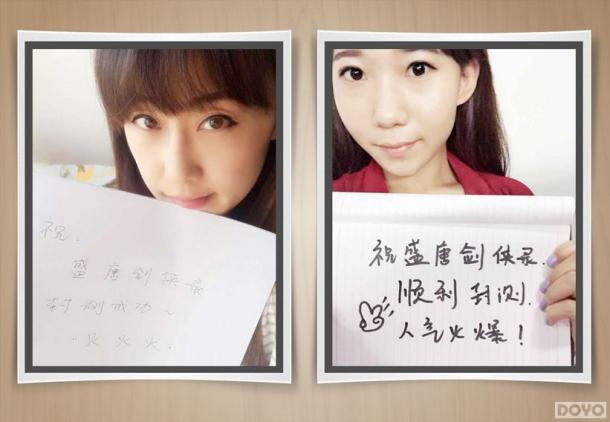 祝.
盛唐剑侠录
封测成功~
火火火.
祝盛唐剑侠录.
顺利封测.
人气火爆!
DOYO